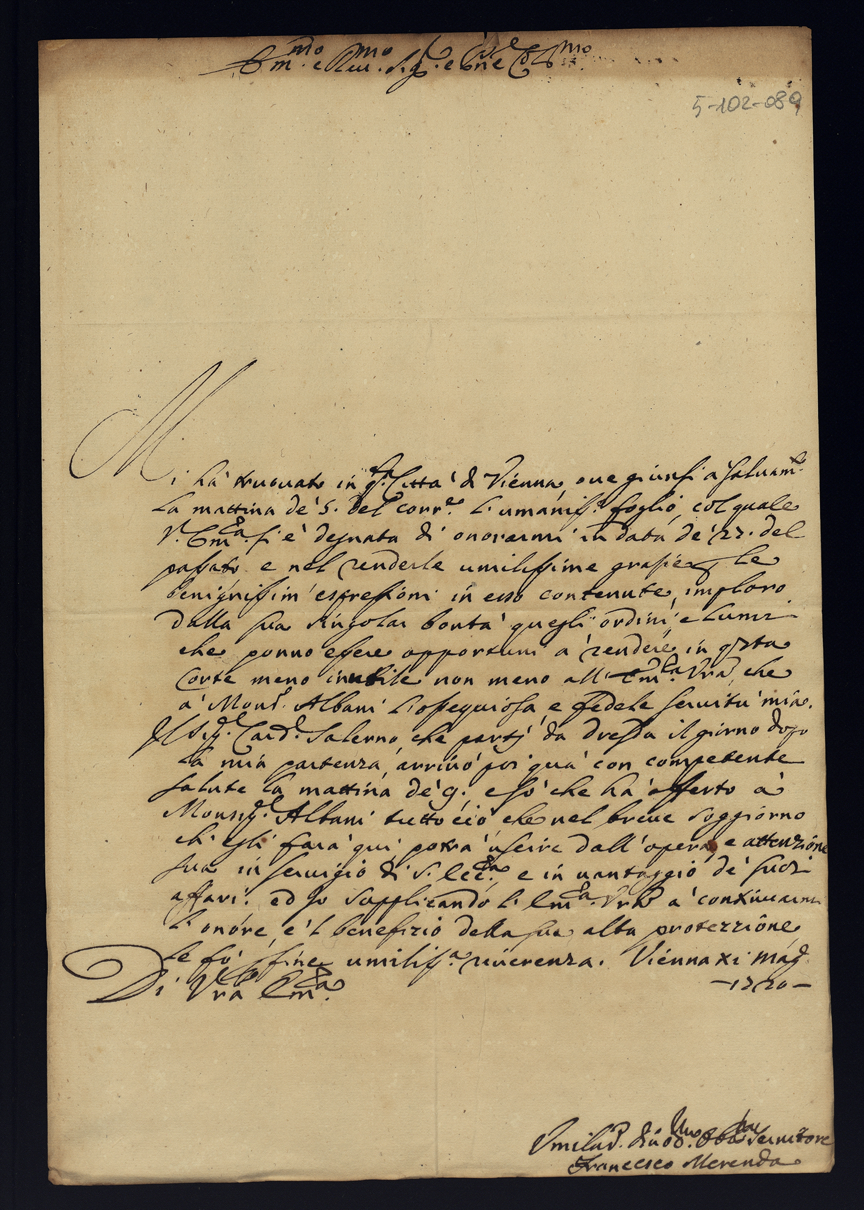 Em.mo e Rev.mo Sig.r e P̃rone Col.mo
5-102-089
Mi hà truovato in q.ta Città di Vienna, ove giunsi a salvam.to
la mattina de' 5. del corr.e l'umanis.o foglio, col quale
V.Em.za si è degnata di onorarmi in data de' 27. del
passato e nel renderle umilissime grazie le
benignissim' espressioni in esso contenute, imploro
dalla sua singolar bontà quegli ordini e lumi
che ponno essere opportuni à rendere in q̃sta
Corte meno inutile non meno all'Em.za V̄r̄a, che
à Mons.r Albani l'ossequiosa e fedele servitù mia.
Il Sig.r Card.l Salerno che partì da Dresda il giorno dopo
la mia partenza, arrivò poi quà con competente
salute la mattina de' 9. e sò che hà offerto à
Monsig.r Albani tutto ciò che nel breve soggiorno
ch'egli farà qui potrà uscire dall'opera e attenzione
sua in servigio di S. Ecc.za e in vantaggio de' suoi
affari. ed io supplicando l'Em.za V̄r̄a à continuarmi
l'onore e 'l benefizio della sua alta protezzione
le fò fine umilis.a riverenza. Vienna xi mag.
Di V̄r̄a Em.za
-1720-
Umilis.o Divo.mo Obb.mo Servitore
Francesco Merenda